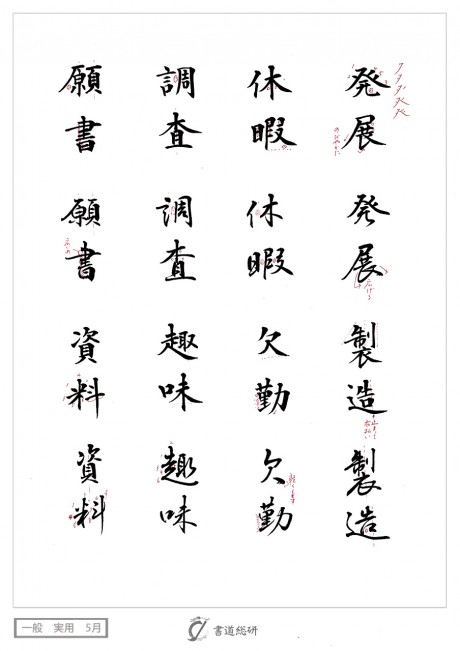 発展
発展
製造
製造
休暇
休暇
欠勤
欠勤
調査
調査
趣味
趣味
願書
願書
資料
資料
一般 実用 5月
書道総研